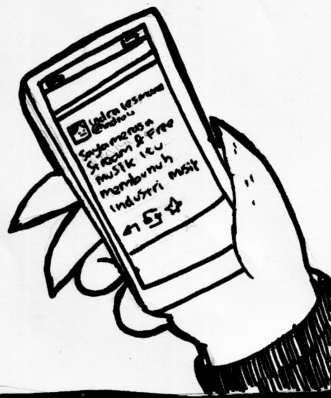 indra lesmana
Saya merasa
Stream & Free
musik itu
membunuh
industri musik